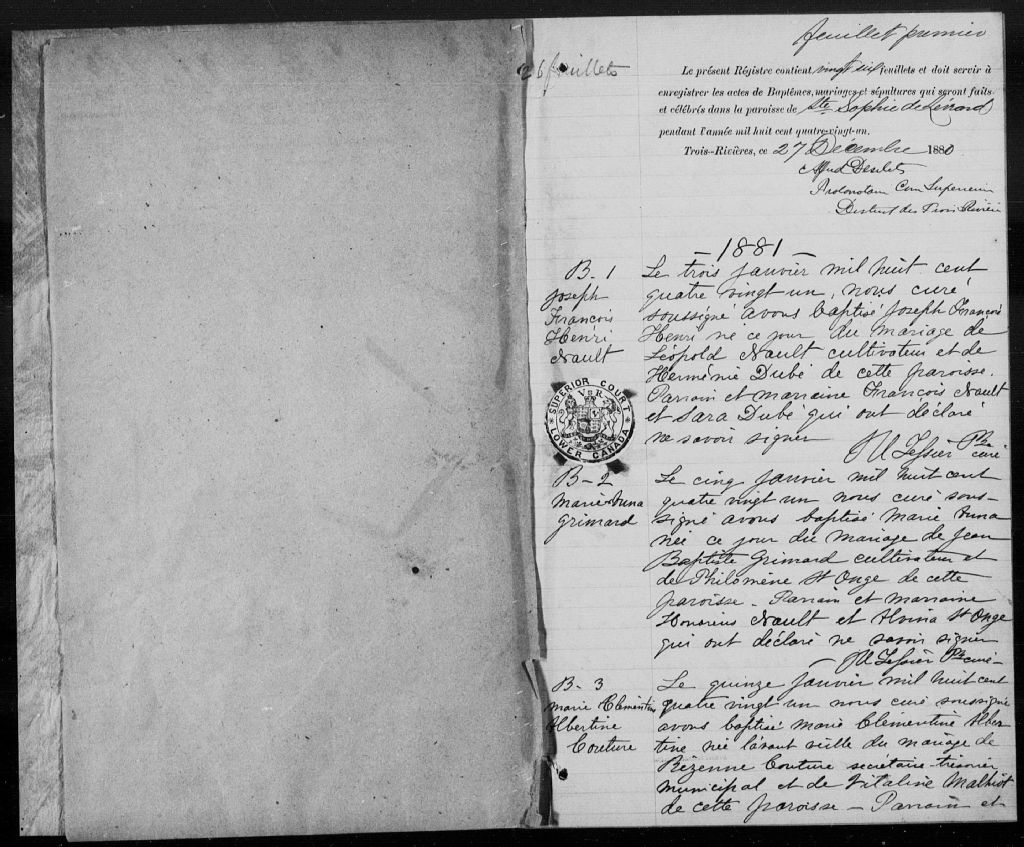 feuillet premier
26 feuillets
Le présent Régistre contient vingt six feuillets et doit servir à
enregistrer les actes de Baptêmes, mariages et sépultures qui seront faits
et célébrés dans la paroisse de Ste Sophie de Lévrard
pendant l'année mil huit cent quatre-vingt-un.
Trois-Rivières, ce 27 Décembre 1880
Alfred Desilets
District des Trois Rivières
- 1881 -
B. 1
Joseph
François
Henri
Nault
Le trois Janvier mil huit cent
quatre vingt un, nous curé
soussigné avons baptisé Joseph François
Henri né ce jour du mariage de
Léopold Nault cultivateur et de
Herménie Dubé de cette paroisse.
Parrain et marraine François Nault
et Sara Dubé qui ont déclaré
ne savoir signer
Tessier Ptre
curé
SUPERIOR COURT
V R
LOWER CANADA
B-2
Marie Anna
Grimard
Le cinq Janvier mil huit cent
quatre vingt un nous curé sous-
signé avons baptisé Marie Anna
née ce jour du mariage de Jean
Baptiste Grimard cultivateur et
de Philomène St Onge de cette
paroisse - Parrain et marraine
Honorius Nault et Alvina St Onge
qui ont déclaré ne savoir signer
Tessier Ptre curé-
B-3
Marie Clémentine
Albertine
Couture
Le quinze Janvier mil huit cent
quatre vingt un nous curé soussigné
avons baptisé Marie Clémentine Alber
tine née l'avant veille du mariage de
Couture secrétaire trésorier
municipal et de Vitaline Malhiot
de cette paroisse - Parrain et